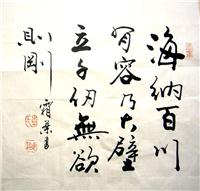 海納百川
有容乃大壁
立千仞無欲
則剛
霜葉書